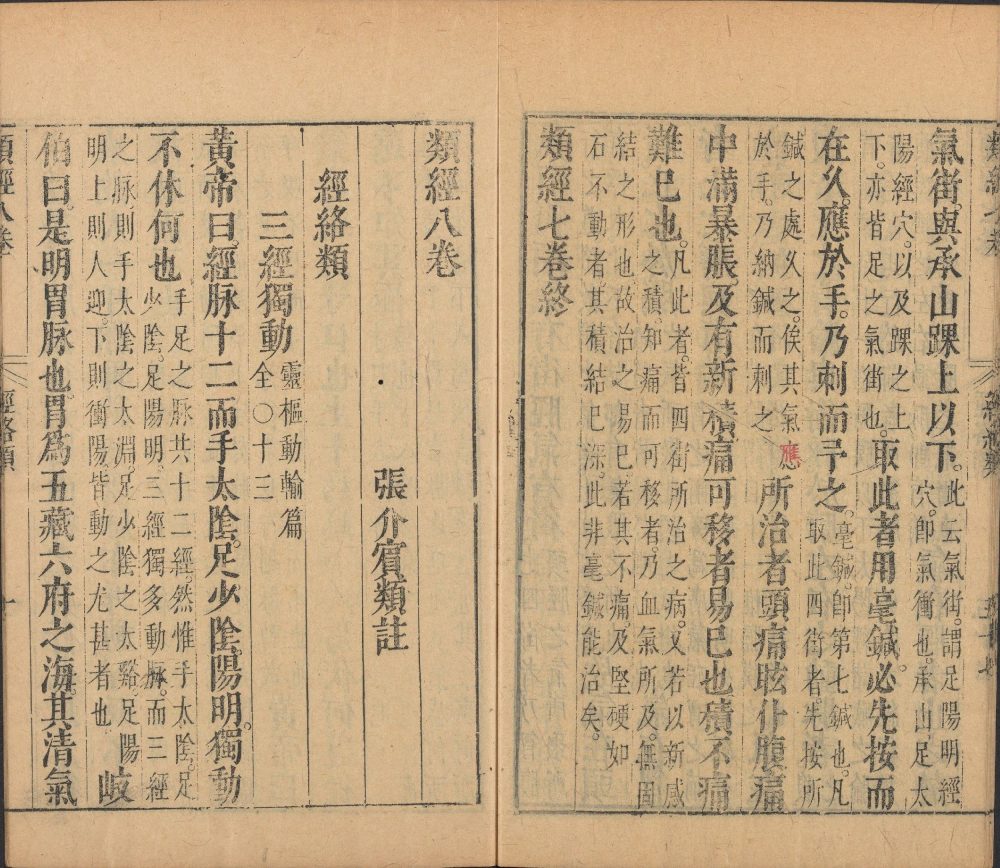 氣街與承山踝上以下。此云氣街。謂足陽明經
穴。卽氣衝也。承山。足太
陽經穴。以及踝之上
下。亦皆足之氣街也。取此者用毫鍼。必先按而
在久。應於手。乃刺而予之。毫鍼。卽第七鍼也。凡
取此四街者。先按所
鍼之處久之。俟其氣應
於手。乃納鍼而刺之所治者頭痛眩仆。腹痛
中滿暴脹。及有新積。痛可移者易巳也。積不痛
難巳也。凡此者。皆四街所治之病。又若以新感
之積。知痛而可移者。乃血氣所及。無固
結之形也。故治之易巳。若其不痛。及堅硬如
石不動者。其積結巳深。此非毫鍼能治矣。
類經七卷終
類經八卷
張介賓類註
經絡類
三經獨動靈樞動輸篇
全〇十三
黃帝曰。經脉十二。而手太陰。足少陰陽明。獨動
不休何也手足之脉共十二經。然惟手太陰。足
少陰。足陽明。三經獨多動脉。而三經
之脉。則手太陰之太淵。足少陰之太谿。足陽
明上則人迎。下則衝陽。皆動之尤甚者也。岐
伯曰。是明胃脉也。胃爲五藏六府之海。其清氣
類經八卷
經絡類